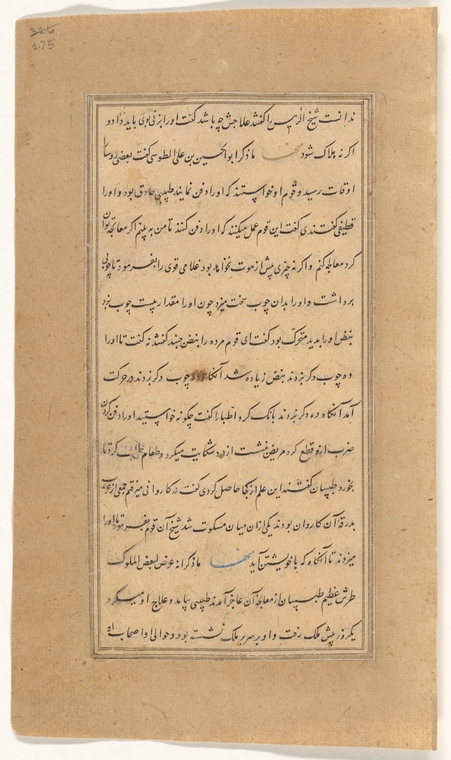 326
175
ندانست شیخ الرئیس را گفتند علاجش چه باشد گفت اورا بزنی نوی باید داد و
اگر نه هلاک شود منها ما ذکر ابو الحسین بن علی الطوسی گفت بعضی روسا
اوقات رسید و قوم او خواستند که اورا دفن نمایند طبیبی حاذق بود و اورا
قطیفی گفتندی گفت این قوم عمل میکنند که اورا دفن کنند تا من به بینم اگر معالجه توان
کرد معالجه کنم و اگر نه چیزی بیش از موت نخواهد بود غلامی قوی را بفرمود تا چوبی
برداشت و اورا بدان چوب سخت میزد چون اورا مقدار بیست چوب بزد
بنض او را بدید متحرک بود گفت ای قوم مرده را بنض جهند گفتند نه گفت تا اورا
ده چوب دگر بزدند بنض زیاده شد آنگاه چوب دگر بزدند در حرکت
آمد آنگاه ده دگر بزدند بانک کرد اطبا را گفت چگونه خواستید اورا دفن کردن
ضرب ازو قطع کرد مریض بنشست از درد شکایت میکرد و طعام خواست کرد تا
بخورد طبیبان گفتند این علم از کجا حاصل کردی گفت در کاروانی میرفتم جمعی از عرب
بدرقه آن کاروان بودند یکی ازان میان مسکوت شد شیخ آن قوم بفرمود تا اورا
میزدند تا آنگاه که باخویشتن آید منها ما ذکر انه عرض لبعض الملوک
طرش عظیم طبیبان از معالجه آن عاجز آمدند طبیبی بیامد و علاج او میکرد
یکروز پیش ملک رفت و او بر سریر ملک نشسته بود و حوالی او اصحاب او